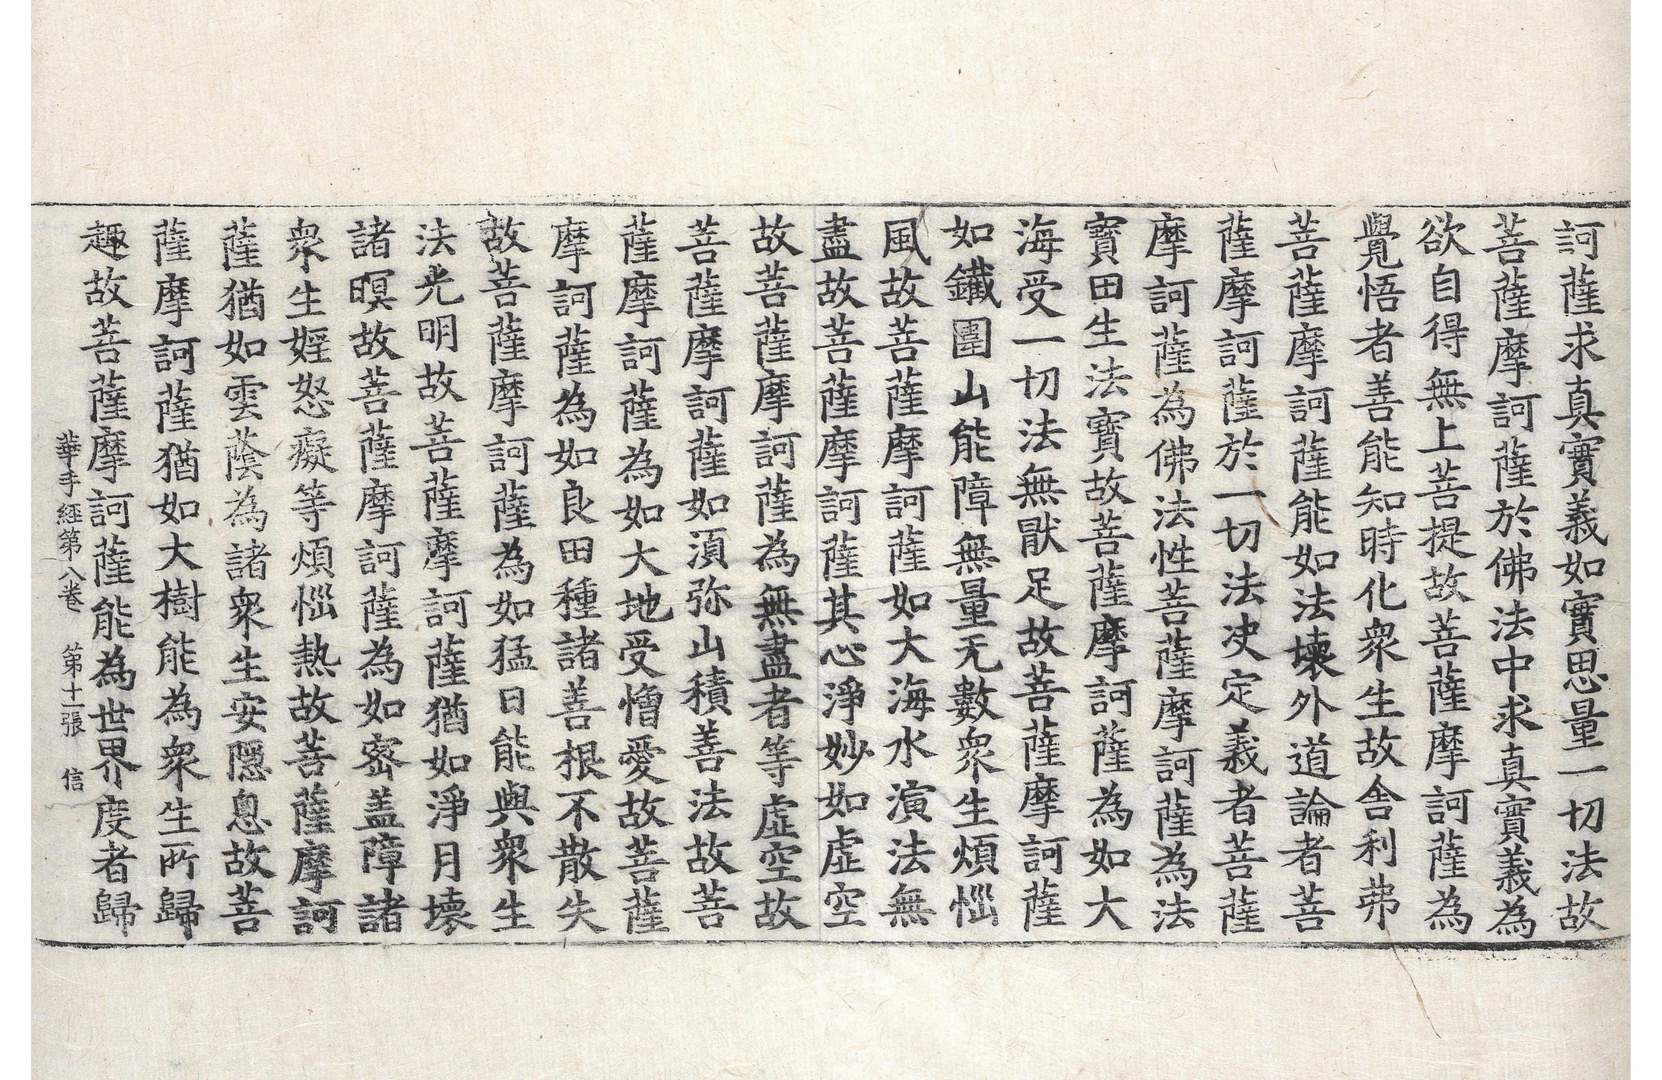 訶薩求真實義如實思量一切法故
菩薩摩訶薩於佛法中求真實義為
欲自得無上菩提故菩薩摩訶薩為
覺悟者善能知時化衆生故舍利弗
菩薩摩訶薩能如法壞外道論者菩
薩摩訶薩於一切法决定義者菩薩
摩訶薩為佛法性菩薩摩訶薩為法
寶田生法寶故菩薩摩訶薩為如大
海受一切法無猒足故菩薩摩訶薩
如鐵圍山能障無量无數衆生煩惱
風故菩薩摩訶薩如大海水演法無
盡故菩薩摩訶薩其心淨妙如虛空
故菩薩摩訶薩為無盡者等虛空故
菩薩摩訶薩如湏弥山積善法故菩
薩摩訶薩為如大地受憎愛故菩薩
摩訶薩為如良田種諸善根不散失
故菩薩摩訶薩為如猛日能與衆生
法光明故菩薩摩訶薩猶如淨月壞
諸暝故菩薩摩訶薩為如密盖障諸
衆生婬怒癡等煩惱熱故菩薩摩訶
薩猶如雲蔭為諸衆生安隱息故菩
薩摩訶薩猶如大樹能為衆生所歸
趣故菩薩摩訶薩能為世界度者歸
華手經第八卷　第十一張　信